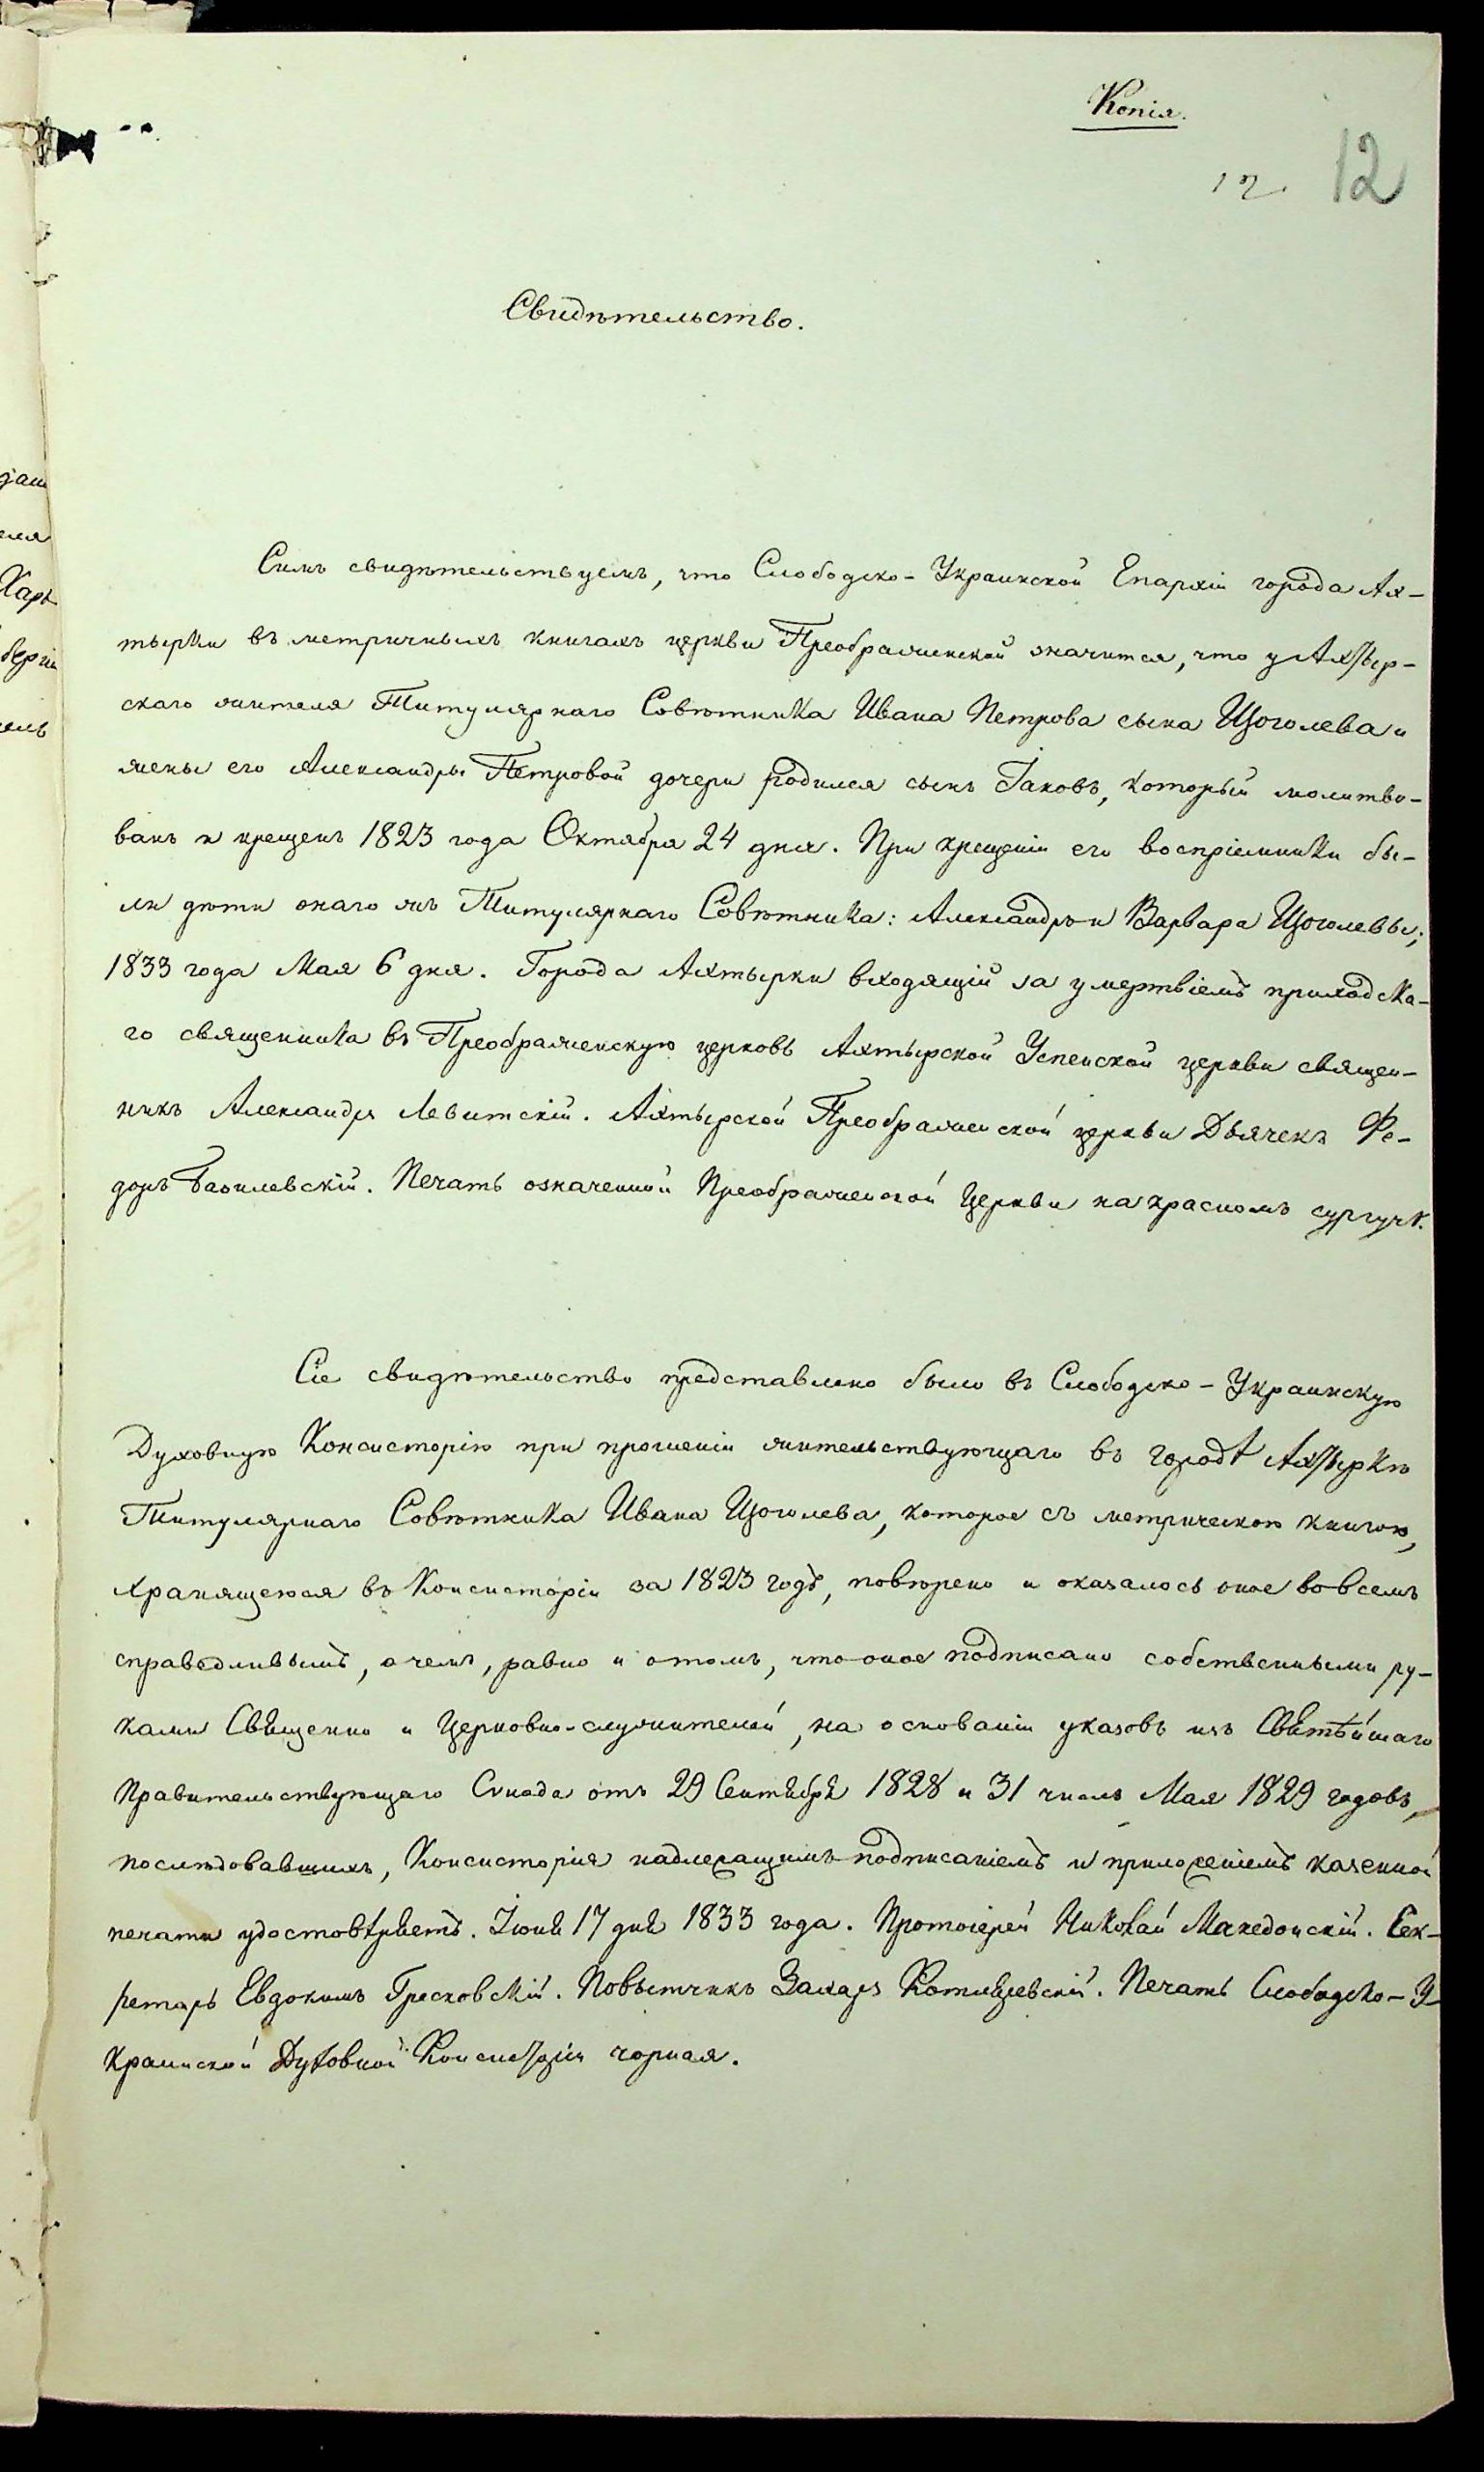 Копія.
12. 12
Свидѣтельство.
Симъ свидѣтельствуемъ, что Слободско-Украинской Епархіи города Ах-
тырки въ метричныхъ книгахъ церкви Преображенской значится, что у Ахтыр-
скаго жителя Титулярнаго Совѣтника Ивана Петрова сына Щоголева и
жены его Александры Петровой дочери родился сынъ Іаковъ, который молитво-
ванъ и крещенъ 1823 года Октября 24 дня. При крещеніи его воспріемники бы-
ли дѣти онаго жъ Титулярнаго Совѣтника: Александръ и Варвара Щоголевы;
1833 года Мая 6 дня. Города Ахтырки входящій за умертвіемъ приходска-
го священника въ Преображенскую церковь Ахтырской Успенской церкви священ-
никъ Александръ Левитскій. Ахтырской Преображенской церкви Дьячекъ Фе-
доръ Базилевскій. Печать означенной Преображенской Церкви на красномъ сургучѣ.
Сіе свидѣтельство представлено было въ Слободско-Украинскую
Духовную Консисторію при прошеніи жительствующаго въ городѣ Ахтыркѣ
Титулярнаго Совѣтника Ивана Щоголева, которое съ метрическою книгою,
хранящеюся въ Консисторіи за 1823 годъ, повѣрено и оказалось оное во всемъ
справедливымъ, о чемъ, равно и о томъ, что оное подписано собственными ру-
ками Священно и Церковно-служителей, на основаніи указовъ изъ Святѣйшаго
Правительствующаго Синода отъ 29 Сентября 1828 и 31 числъ Мая 1829 годовъ,
послѣдовавшихъ, Консисторія надлежащимъ подписаніемъ и приложеніемъ казенной
печати удостовѣряетъ. Іюня 17 дня 1833 года. Протоіерей Николай Македонскій. Сек-
ретарь Евдокимъ Гресковскій. Повытчикъ Захаръ Котляревскій. Печать Слободско-У-
краинской Духовной Консисторіи чорная.